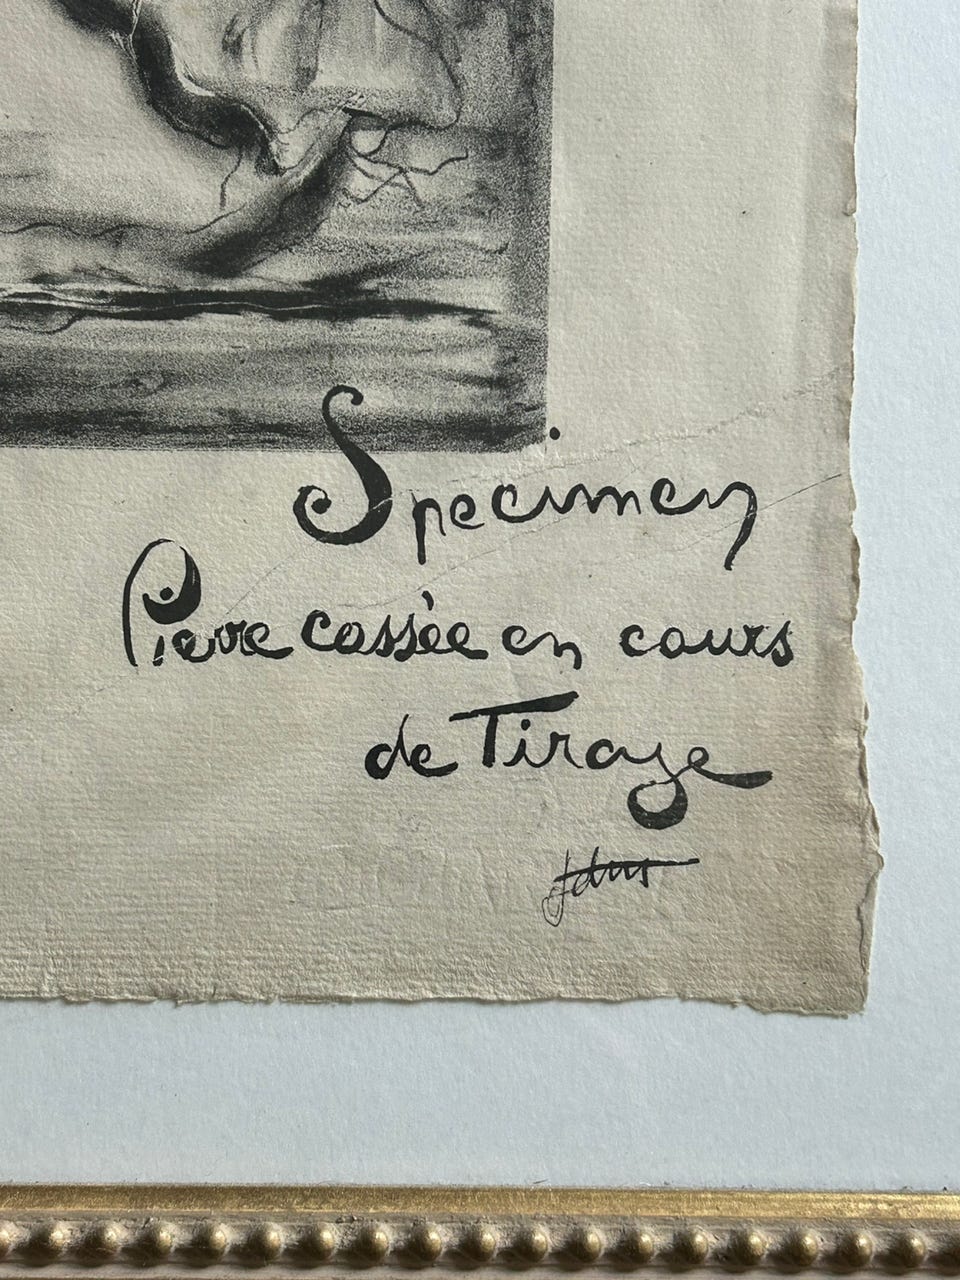 Specimen
Pierre cassée en cours
de Tirage